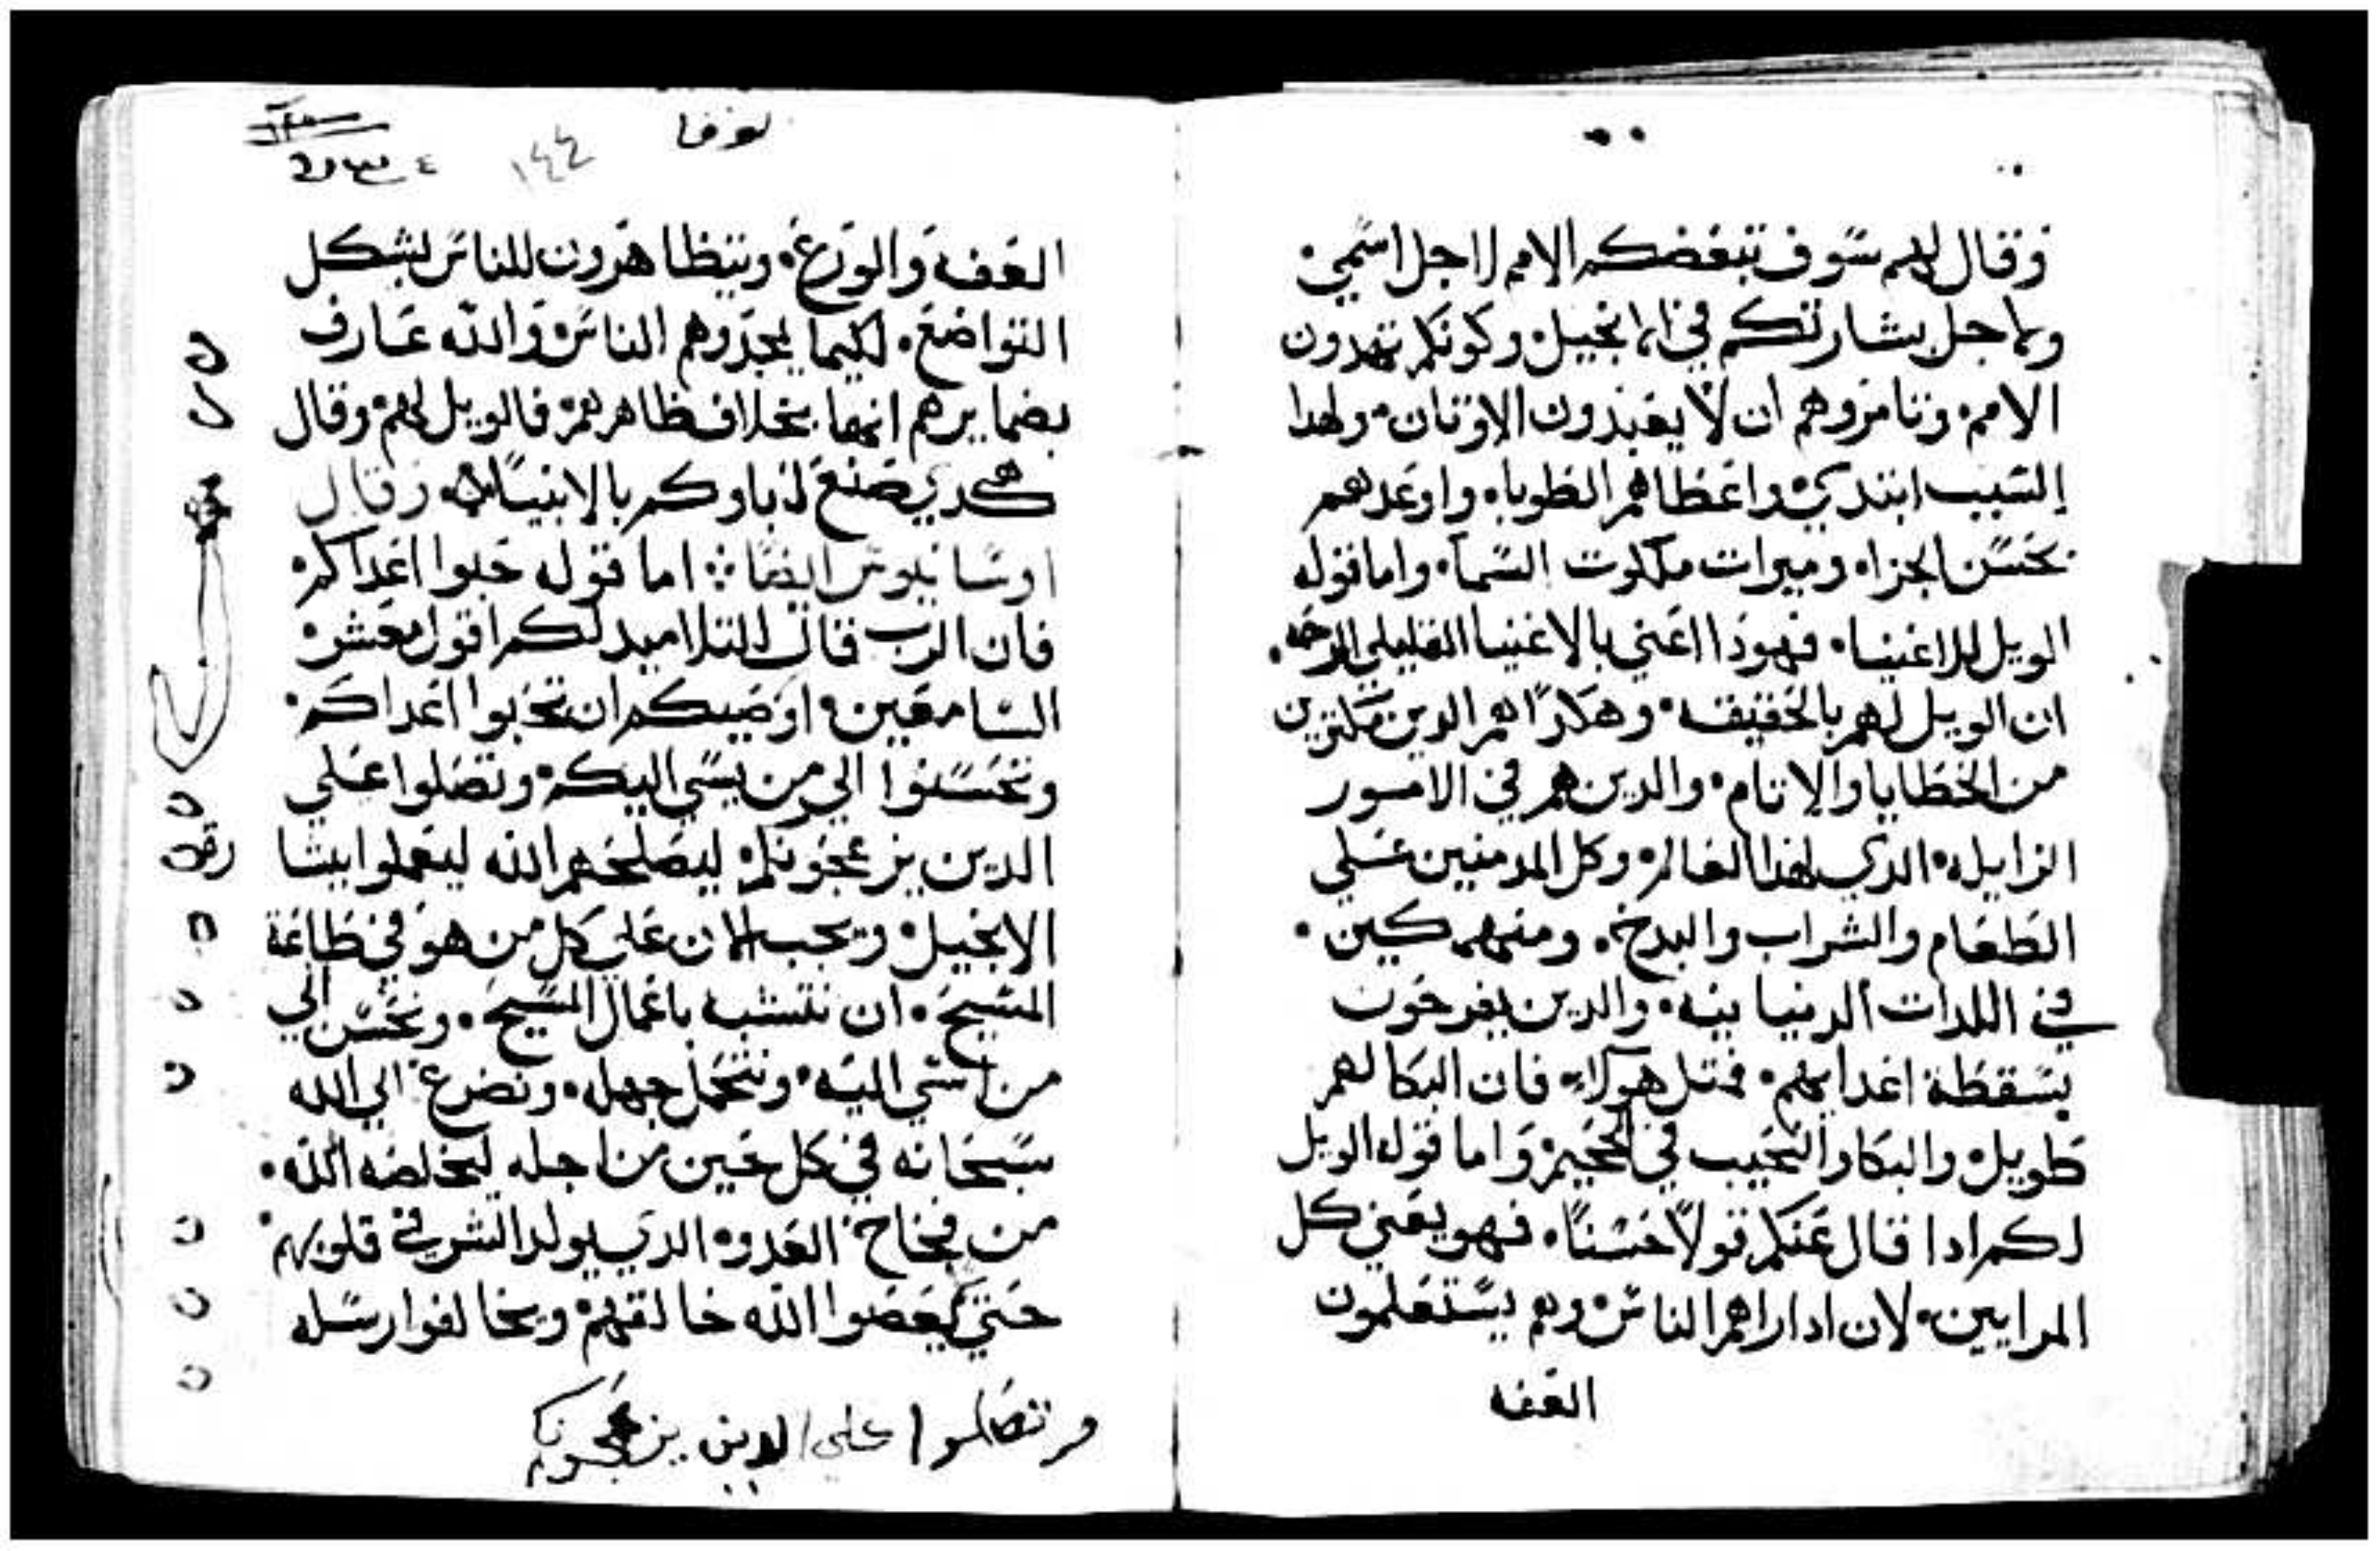 وقال لهم سوف تبغضكم الامم لاجل اسمي.
ولاجل بشارتكم في الانجيل وكونكم تهدون
الامم. وتامروهم ان لا يعبدون الاوتان. ولهدا
السبب ابتدي واعطاهم الطوباه واوعدهم
بحسن الجزاه وميرات ملكوت السماء. واما قوله
الويل للاغنيا. فهوذا اعني بالاغنيا القليلي الرحمه.
ان الويل لهم بالحقيقه. وهكذا هم الدين مكترين
من الخطايا والاتام. والدين هم في الامور
الزايله الدي لهذا العالم. وكل المدمنين علي
الطعام والشراب والبدخ. ومنهمكين.
في اللدات الدنيا نيه. والدين يفرحون
بسقطة اعدايهم. فمتل هولاء فان البكا لهم
طويل. والبكا والنحيب في الجحيم. واما قوله الويل
لكم ادا قال عنكم قولاً حسناً. فهو يعني كل
المرايين. لان ادا راهم الناس وهم يستعلمون
العفه
لوقا
١٤٤
العفه والورع. ويتظاهرون للناس بشكل
التواضع. لكيما يمجدوهم الناس والله عارف
بضمايرهم انها بخلاف ظاهرهم. فالويل لهم. وقال
هكدي صنع اباوكم بالانبيا. وقال
اوسانيوس ايضاً ܀ اما قوله حبوا اعداكم.
فان الرب قال للتلاميد لكم اقول معشر
السامعين. اوصيكم ان تحبوا اعداكم.
وتحسنوا الي من يسي اليكم. وتصلوا علي
الدين يزعجونكم. ليصلحهم الله ليعملوا بيشا
الانجيل. ويجب الان علي كل من هو في طاعة
المسيح. ان نتشبه باعمال المسيح. ونحسن الي
من اسي اليه. ونتحمل جهله. ونضرع الي الله
سبحانه في كل حين من اجله ليخلصه الله.
من فخاخ العدوه الدي يولد الشر في قلوبهم.
حتي يعصوا الله خالقهم ويخالفوا رسله
وتصلوا علي الدين يزعجونكم